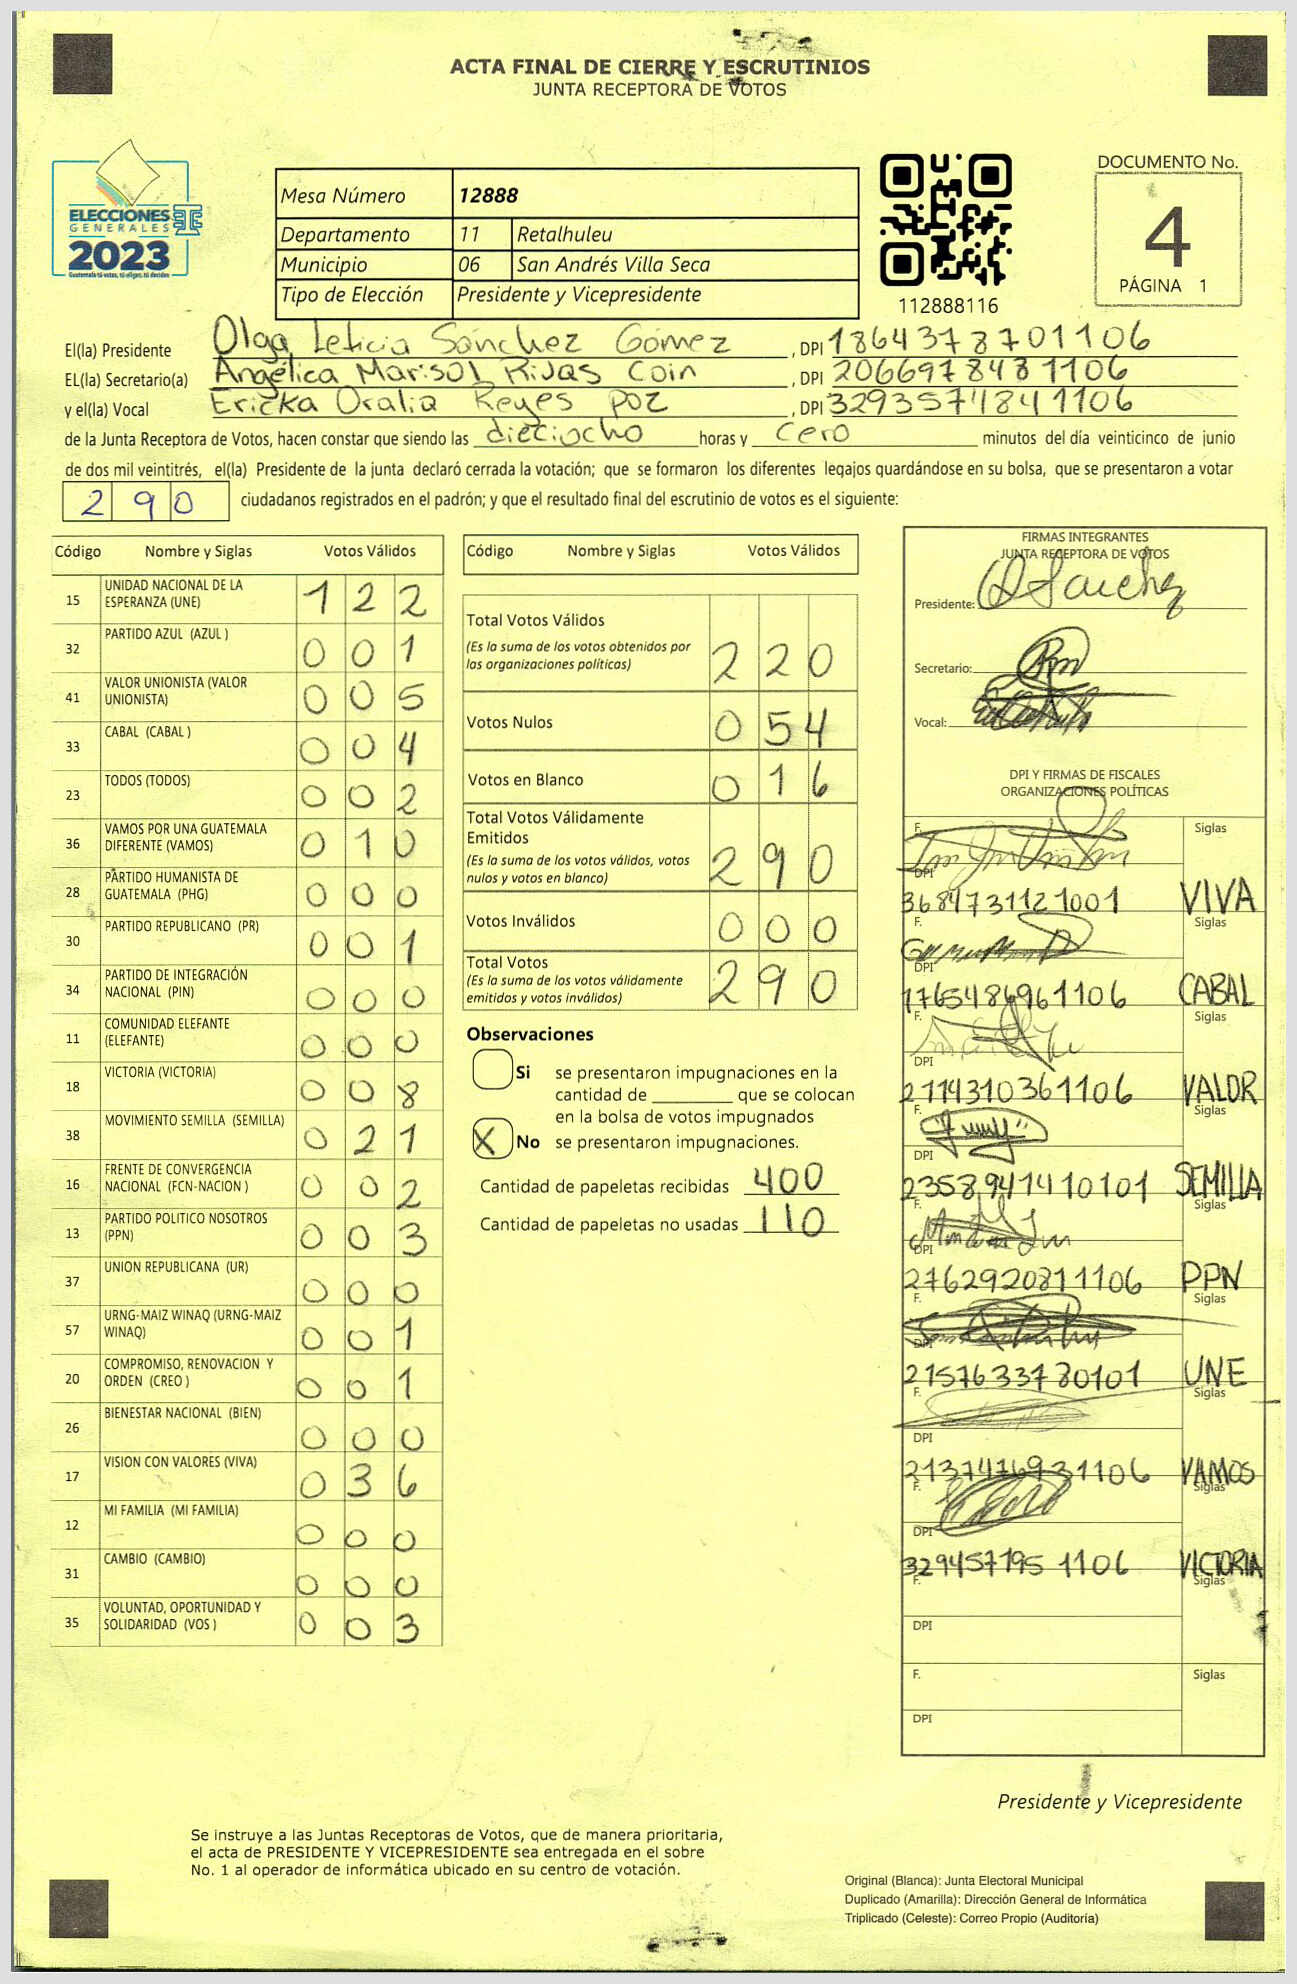 ACTA FINAL DE CIERRE Y ESCRUTINIOS
JUNTA RECEPTORA DE VOTOS
ELECCIONES
GENERALES
2023
Guatemala tú votas, tú eliges, tú decides
Mesa Número 12888
Departamento 11 Retalhuleu
Municipio 06 San Andrés Villa Seca
Tipo de Elección Presidente y Vicepresidente
112888116
DOCUMENTO No.
4
PÁGINA 1
El(la) Presidente Olga Leticia Sánchez Gómez , DPI 1864378701106
EL(la) Secretario(a) Angélica Marisol Rivas Coin , DPI 2066978481106
y el(la) Vocal Ericka Oralia Reyes Poz , DPI 3293574841106
de la Junta Receptora de Votos, hacen constar que siendo las dieciocho horas y cero minutos del día veinticinco de junio
de dos mil veintitrés, el(la) Presidente de la junta declaró cerrada la votación; que se formaron los diferentes legajos guardándose en su bolsa, que se presentaron a votar
290 ciudadanos registrados en el padrón; y que el resultado final del escrutinio de votos es el siguiente:
Código Nombre y Siglas Votos Válidos
15 UNIDAD NACIONAL DE LA ESPERANZA (UNE) 122
32 PARTIDO AZUL (AZUL ) 001
41 VALOR UNIONISTA (VALOR UNIONISTA) 005
33 CABAL (CABAL ) 004
23 TODOS (TODOS) 002
36 VAMOS POR UNA GUATEMALA DIFERENTE (VAMOS) 010
28 PARTIDO HUMANISTA DE GUATEMALA (PHG) 000
30 PARTIDO REPUBLICANO (PR) 001
34 PARTIDO DE INTEGRACIÓN NACIONAL (PIN) 000
11 COMUNIDAD ELEFANTE (ELEFANTE) 000
18 VICTORIA (VICTORIA) 008
38 MOVIMIENTO SEMILLA (SEMILLA) 021
16 FRENTE DE CONVERGENCIA NACIONAL (FCN-NACION ) 002
13 PARTIDO POLITICO NOSOTROS (PPN) 003
37 UNION REPUBLICANA (UR) 000
57 URNG-MAIZ WINAQ (URNG-MAIZ WINAQ) 001
20 COMPROMISO, RENOVACION Y ORDEN (CREO ) 001
26 BIENESTAR NACIONAL (BIEN) 000
17 VISION CON VALORES (VIVA) 036
12 MI FAMILIA (MI FAMILIA) 000
31 CAMBIO (CAMBIO) 000
35 VOLUNTAD, OPORTUNIDAD Y SOLIDARIDAD (VOS ) 003
Código Nombre y Siglas Votos Válidos
Total Votos Válidos
(Es la suma de los votos obtenidos por las organizaciones políticas) 220
Votos Nulos 054
Votos en Blanco 016
Total Votos Válidamente Emitidos
(Es la suma de los votos válidos, votos nulos y votos en blanco) 290
Votos Inválidos 000
Total Votos
(Es la suma de los votos válidamente emitidos y votos inválidos) 290
Observaciones
Si se presentaron impugnaciones en la
cantidad de ________ que se colocan
en la bolsa de votos impugnados
X No se presentaron impugnaciones.
Cantidad de papeletas recibidas 400
Cantidad de papeletas no usadas 110
FIRMAS INTEGRANTES
JUNTA RECEPTORA DE VOTOS
Presidente: O Sanchez
Secretario:
Vocal:
DPI Y FIRMAS DE FISCALES
ORGANIZACIONES POLÍTICAS
F. Siglas
DPI 3684731121001 VIVA
F. Siglas
DPI 1765486961106 CABAL
F. Siglas
DPI 2114310361106 VALOR
F. Siglas
DPI 2358941410101 SEMILLA
F. Siglas
DPI 2762920811106 PPN
F. Siglas
DPI 2157633780101 UNE
F. Siglas
DPI 2137476931106 VAMOS
F. Siglas
DPI 3294577951106 VICTORIA
F. Siglas
DPI
F. Siglas
DPI
Presidente y Vicepresidente
Se instruye a las Juntas Receptoras de Votos, que de manera prioritaria,
el acta de PRESIDENTE Y VICEPRESIDENTE sea entregada en el sobre
No. 1 al operador de informática ubicado en su centro de votación.
Original (Blanca): Junta Electoral Municipal
Duplicado (Amarilla): Dirección General de Informática
Triplicado (Celeste): Correo Propio (Auditoría)